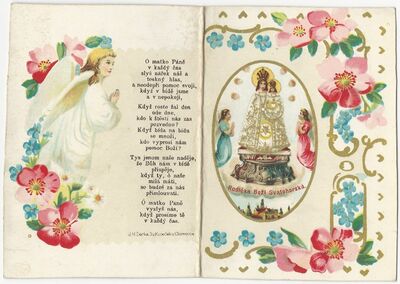 O matko Páně
v každý čas
slyš nářek náš a
teskný hlas,
a neodepři pomoc svoji,
když v bídě jsme
a v nepokoji.
Když roste žal den
ode dne,
kdo k štěstí nás zas
pozvedne?
Když bída na bídu
se množí,
kdo vyprosí nám
pomoc Boží?
Tys jenom naše naděje,
že Bůh nám v bídě
přispěje,
když ty, ó naše
milá máti,
se budeš za nás
přimlouvati.
Ó matko Páně
vyslyš nás,
když prosíme tě
v každý čas.
Rodička Boží Svatohorská.